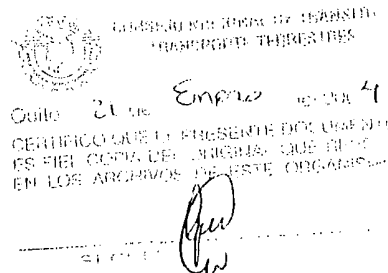 CONSEJO NACIONAL DE TRANSITO
TRANSPORTE TERRESTRES
Quito 21 de Enero
CERTIFICO QUE EL PRESENTE DOCUMENT
ES FIEL COPIA DEL ORIGINAL QUE
EN LOS ARCHIVOS DE ESTE ORGANISM